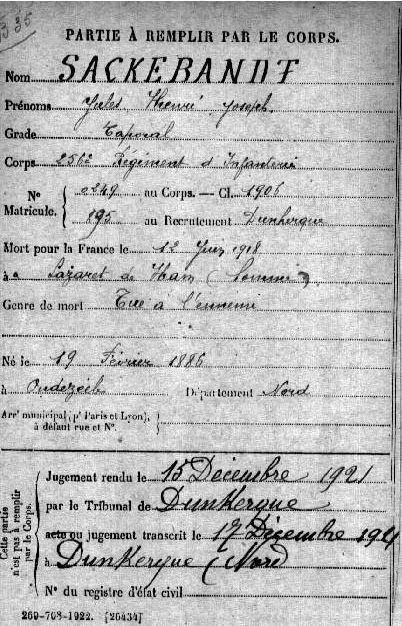 PARTIE À REMPLIR PAR LE CORPS.
Nom SACKEBANDT
Prénoms Jules Henri Joseph
Grade Caporal
Corps 256e Régiment d'Infanterie
N° Matricule. 2249 au Corps. — Cl. 1906
895 au Recrutement Dunkerque
Mort pour la France le 12 Juin 1918
à Lazaret de Ham (Somme)
Genre de mort Tué à l'ennemi
Né le 19 Février 1886
à Oudezeele Département Nord
Arr' municipal (p' Paris et Lyon),
à défaut rue et N°.
Cette partie n'est pas à remplir par le Corps.
Jugement rendu le 15 Décembre 1921
par le Tribunal de Dunkerque
acte ou jugement transcrit le 17 Décembre 1921
à Dunkerque (Nord)
N° du registre d'état civil
269-708-1922. [26434]